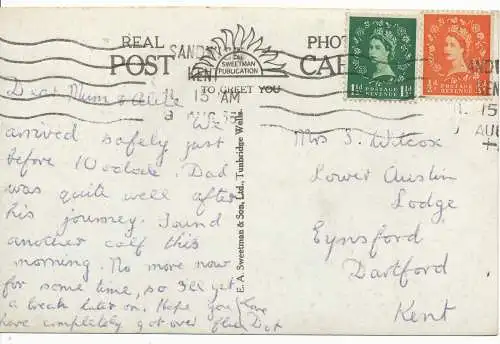 REAL PHOTO
POST CARD
A
SWEETMAN
PUBLICATION
TO GREET YOU
SANDW
KENT
15 AM
AUG 55
POSTAGE REVENUE
1½d
POSTAGE REVENUE
½d
ANDW
KEN
15
AUG
Dear Mum &
We
arrived safely just
before 10 o'clock. Dad
was quite well after
his journey. Found
another calf this
morning. No more now
for some time, so I'll get
a break later on. Hope you
have completely got over flu. Dot
E. A. Sweetman & Son, Ltd., Tunbridge Wells.
Mrs S. Wilcox
Lower Austin
Lodge
Eynsford
Dartford
Kent